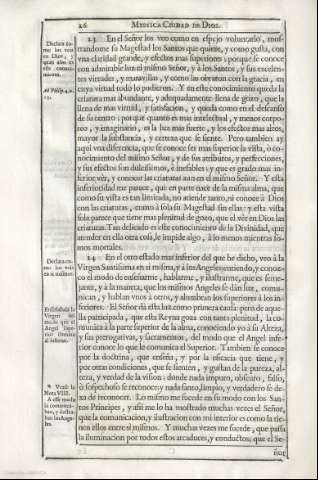 26. MYSTICA CIUDAD DE DIOS.
Declara como las veo en Dios, y quan alto es este conocimiento.
Ad Philip. 4. v. 13.
23 En el Señor los veo como en espejo voluntario, mos-
trandome su Magestad los Santos que quiere, y como gusta, con
vna claridad grande, y efectos mas superiores: porque se conoce
con admirable luz el mismo Señor, y à los Santos, y sus excelen-
tes virtudes, y marauillas, y como las obraron con la gracia, en
cuya virtud todo lo pudieron. Y en este conocimiento queda la
criatura mas abundante, y adequadamente llena de gozo, que la
llena de mas virtud, y satisfacion, y queda como en el descanso
de su centro: porque quanto es mas intelectual, y menos corpo-
reo, è imaginario, es la luz mas fuerte, y los efectos mas altos,
mayor la substancia, y certeza que se siente. Pero tambien ay
aqui vna diferencia, que se conoce ser mas superior la vista, ò co-
nocimiento del mismo Señor, y de sus atributos, y perfecciones,
y sus efectos son dulcissimos, è inefables: y que es grado mas in-
ferior ver, y conocer las criaturas aun en el mismo Señor. Y esta
inferioridad me parece, que en parte nace de la misma alma, que
como su vista es tan limitada, no atiende tanto, ni conoce à Dios
con las criaturas, como à sola su Magestad sin ellas: y esta vista
sola parece que tiene mas plenitud de gozo, que el ver en Dios las
criaturas. Tan delicado es este conocimiento de la Diuinidad, que
atender en ella otra cosa, le impide algo, à lo menos mientras so-
mos mortales.
24 En el otro estado mas inferior del que he dicho, veo à la
Virgen Santissima en si misma, y à los Angeles; entiendo, y conoz-
co el modo de enseñarme, hablarme, y ilustrarme, que es seme-
jante, y à la manera, que los mismos Angeles se dàn luz, comu-
nican, y hablan vnos à otros, y alumbran los superiores à los in-
feriores. El Señor dà esta luz como primera causa; pero de aque-
lla participada, que esta Reyna goza con tanta plenitud, la co-
munica à la parte superior de la alma, conociendo yo à su Alteza,
y sus prerogatiuas, y sacramentos, del modo que el Angel infe-
rior conoce lo que le comunica el Superior. Tambien se conoce
por la doctrina, que enseña, y por la eficacia que tiene, y
por otras condiciones, que se sienten, y gustan de la pureza, al-
teza, y verdad de la vision: donde nada impuro, obscuro, falso,
ò sospechoso se reconoce: y nada santo, limpio, y verdadero se de-
xa de reconocer. Lo mismo me sucede en su modo con los San-
tos Principes, y assi me lo ha mostrado muchas vezes el Señor,
que la comunicacion, y ilustracion con mi interior es como la tie-
nen ellos entre si mismos. Y muchas vezes me sucede, que passa
la iluminacion por todos estos arcaduces, y conductos; que el Se-
ñor